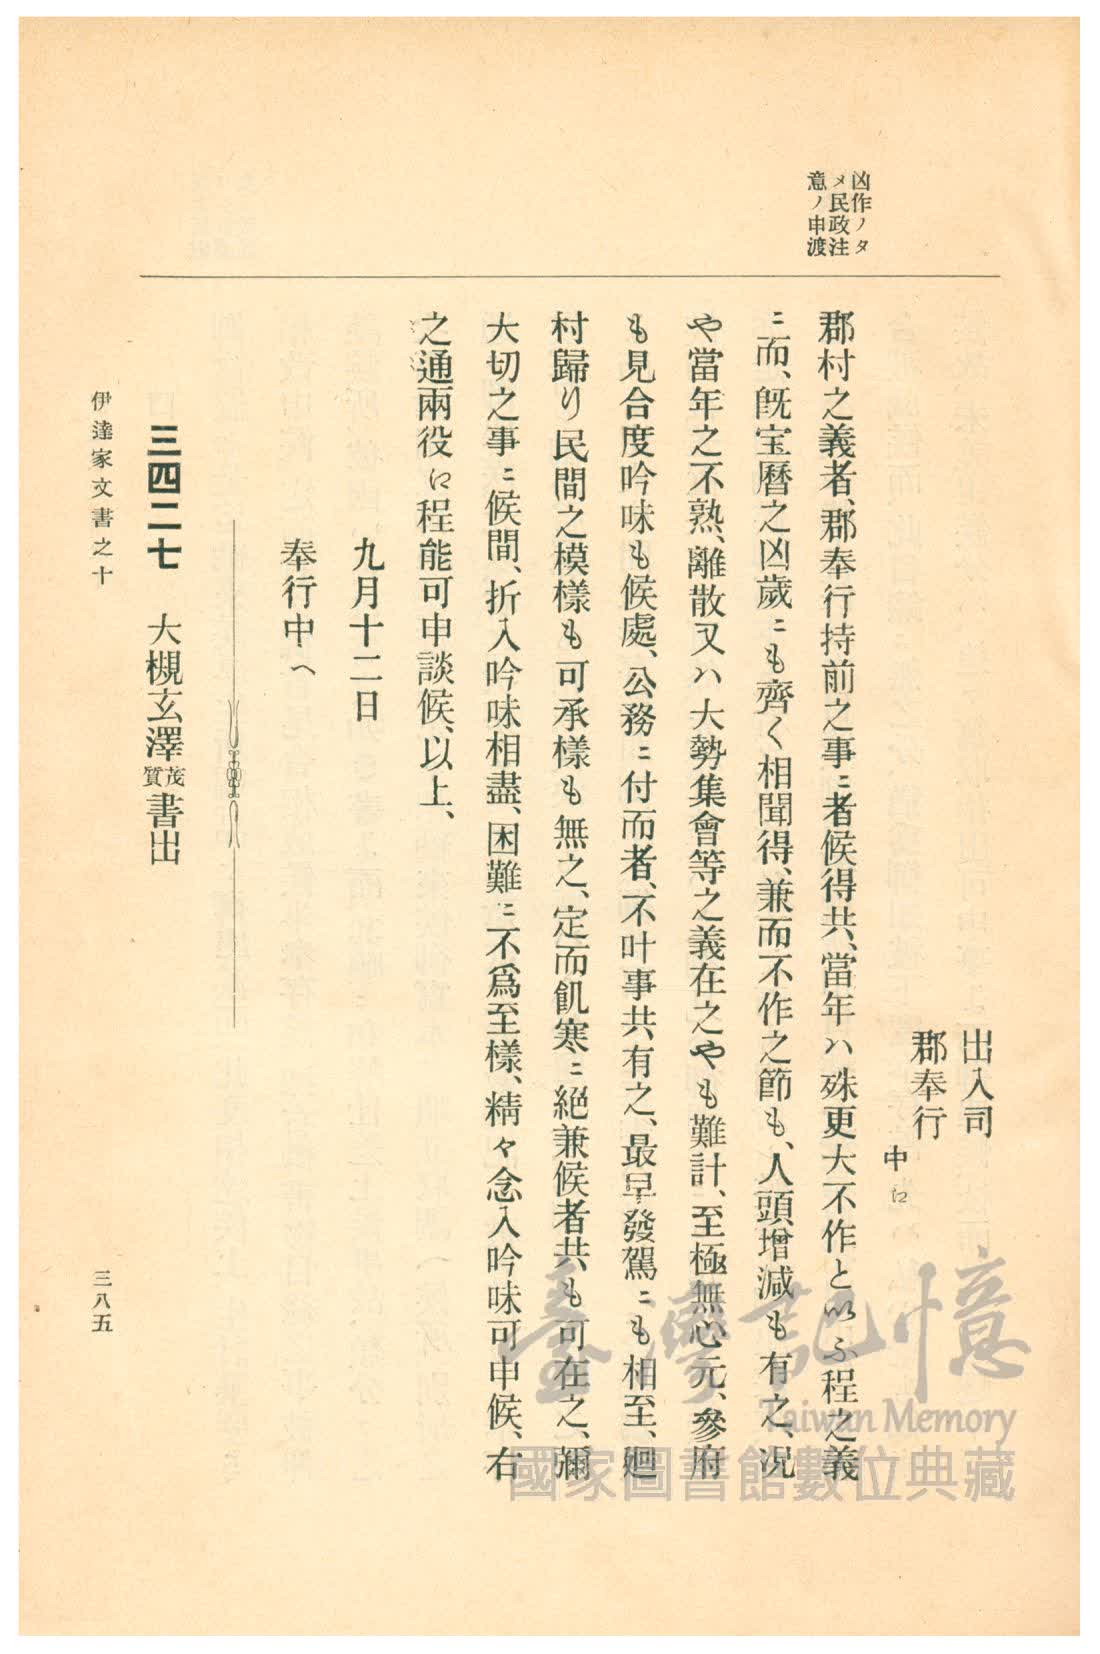 凶作ノタ
メ民政注
意ノ申渡
出入司
郡奉行
中江
郡村之義者、郡奉行持前之事ニ者候得共、當年ハ殊更大不作といふ程之義
ニ而、既宝曆之凶歲ニも齊く相聞得、兼而不作之節も、人頭增減も有之、况
や當年之不熟、離散又ハ大勢集會等之義在之やも難計、至極無心元、參府
も見合度吟味も候處、公務ニ付而者、不叶事共有之、最早發駕ニも相至、廻
村歸り民間之模樣も可承樣も無之、定而飢寒ニ絕兼候者共も可在之、彌
大切之事ニ候間、折入吟味相盡、困難ニ不爲至樣、精々念入吟味可申候、右
之通兩役江程能可申談候、以上、
九月十二日
奉行中へ
三四二七 大槻玄澤茂質書出
伊達家文書之十
三八五
臺灣記憶
Taiwan Memory
國家圖書館數位典藏